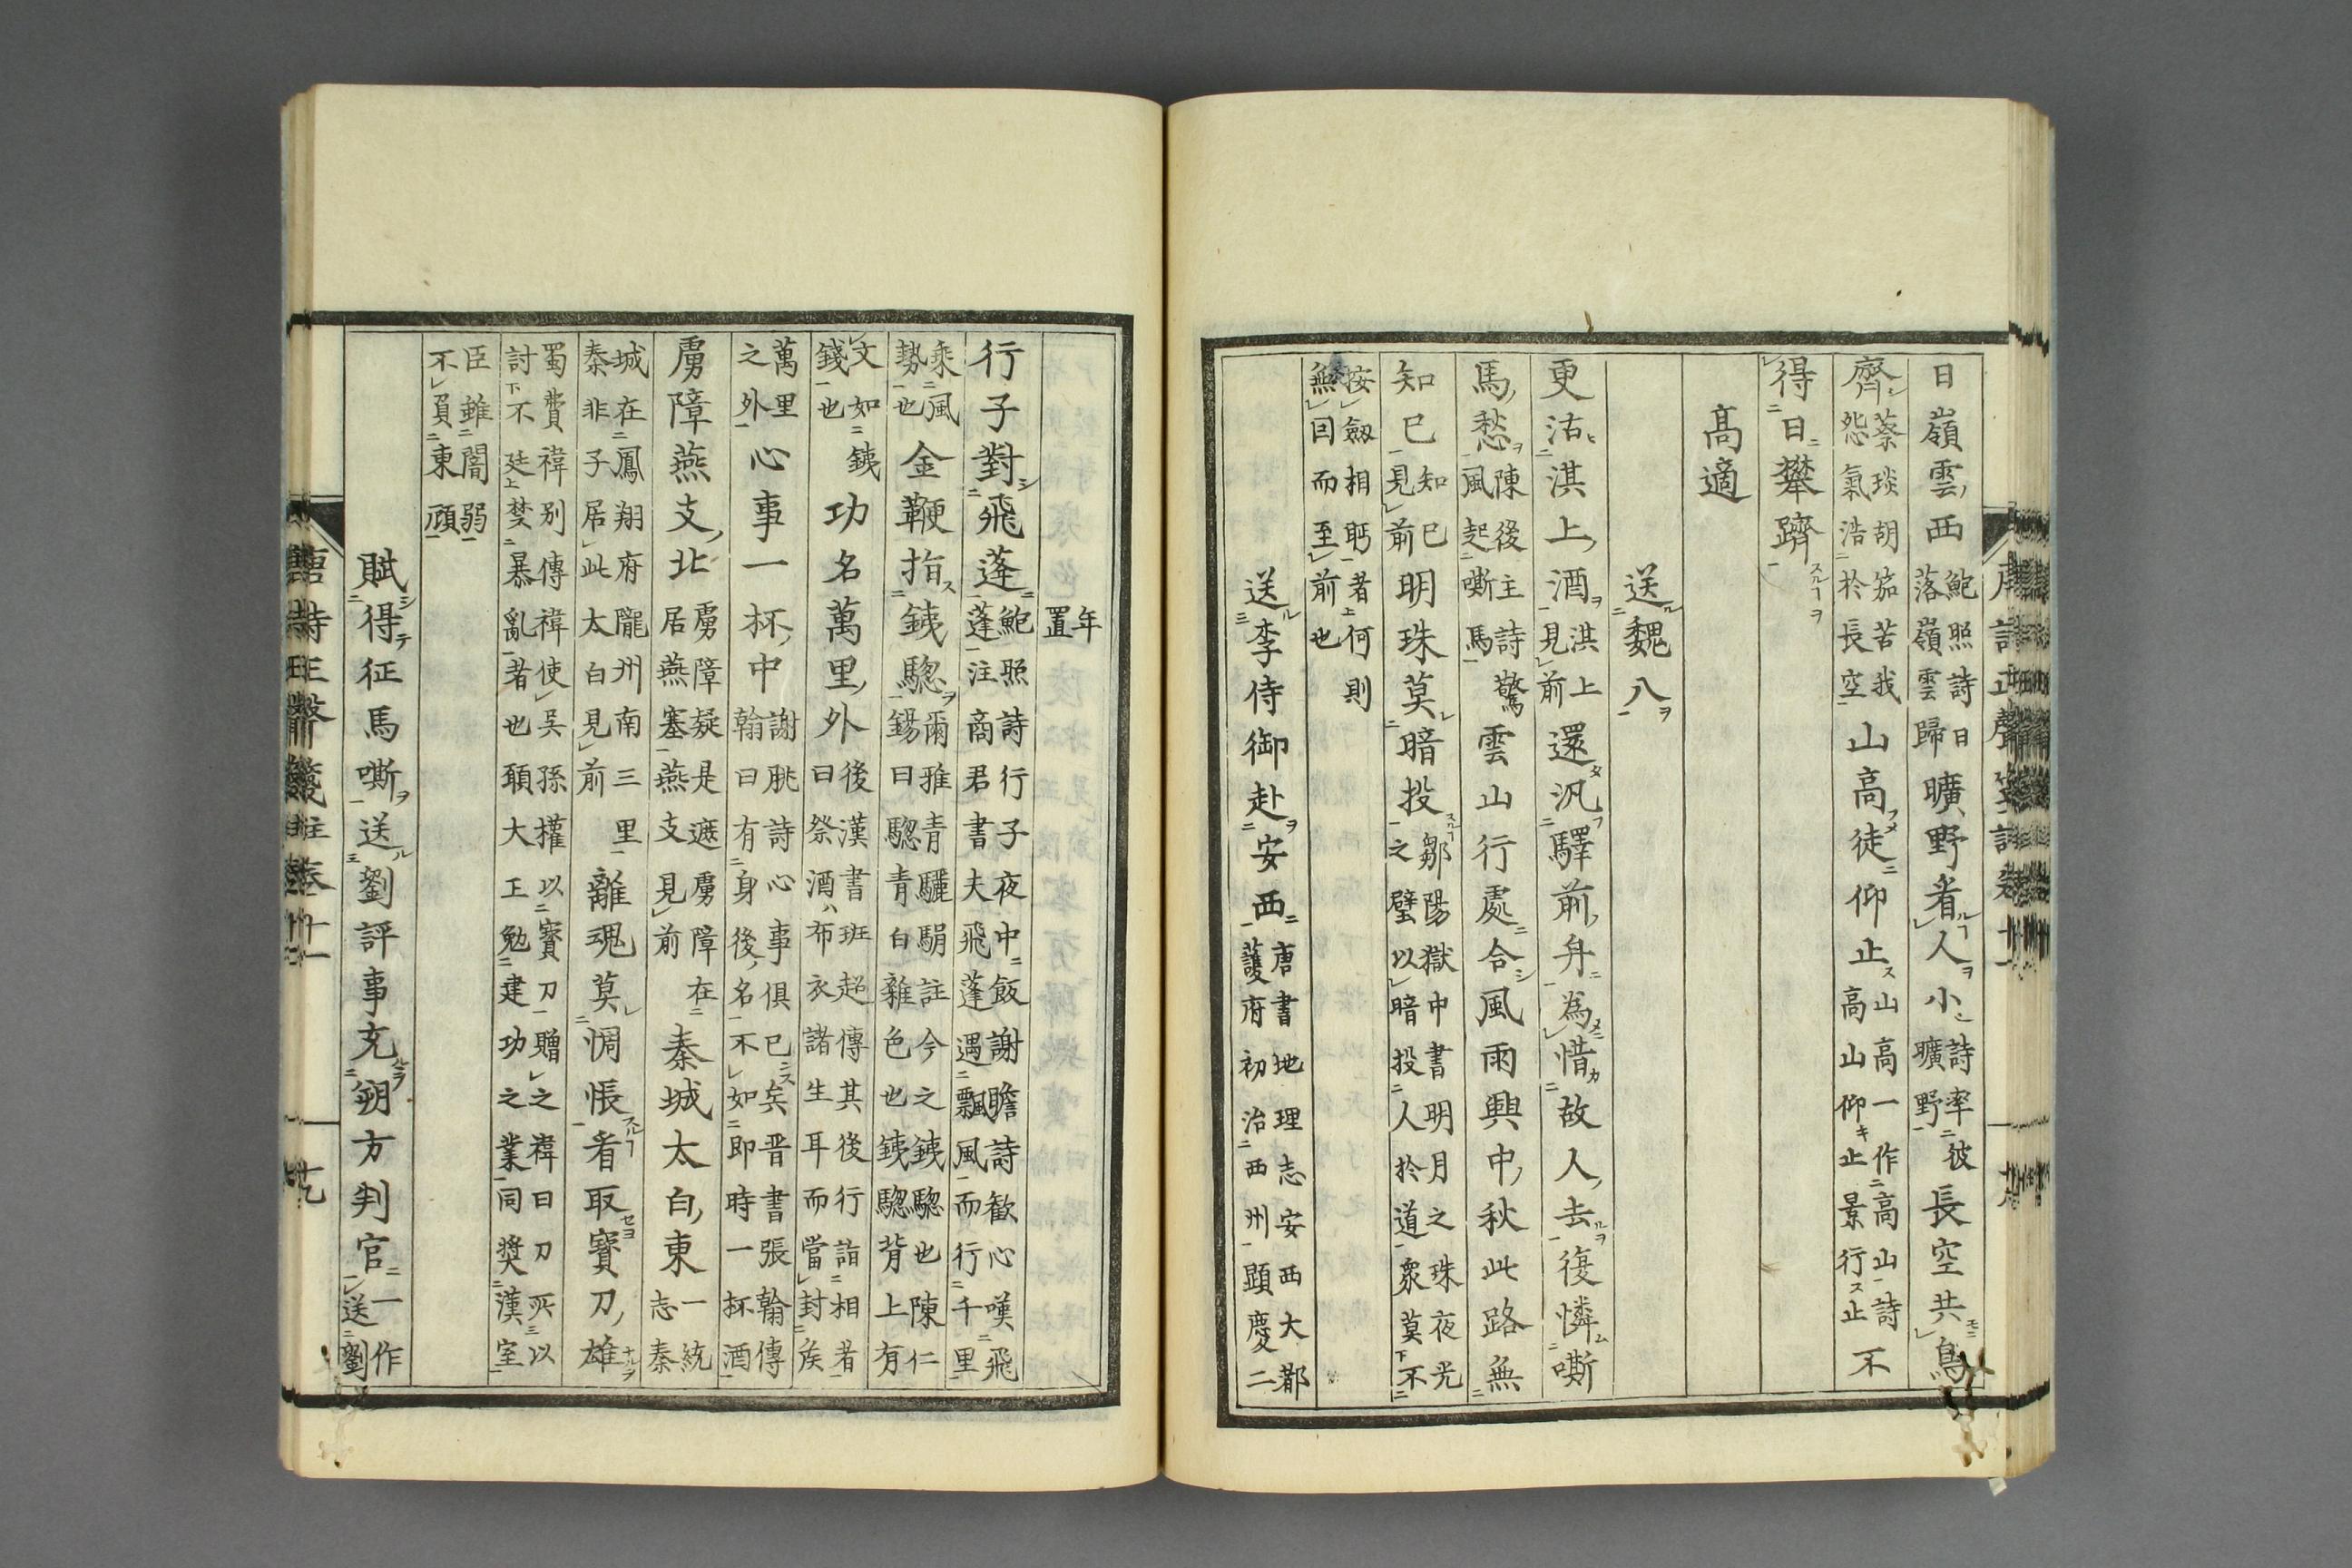 日嶺雲西鮑照詩日落嶺雲歸曠野看人小詩率彼曠野長空共鳥
齊蔡琰胡笳苦我怨氣浩於長空山高徒仰止山高一作高山詩高山仰止景行止不
得日攀躋
高適
送魏八
更沽淇上酒淇上見前還汎驛前舟為惜故人去復憐嘶
馬愁陳後主詩風起嘶馬驚雲山行處合風雨興中秋此路無
知已知已見前明珠莫暗投鄒陽獄中書明月之珠夜光之璧以暗投人於道衆莫不
按劔相眄者何則無因而至前也
送李侍御赴安西唐書地理志安西大都護府初治西州顕慶二
年置
行子對飛蓬鮑照詩行子夜中飯謝瞻詩歓心嘆飛蓬注商君書夫飛蓬遇飄風而行千里
乘風勢也金鞭指銕驄爾雅青驪駽註今之銕驄也陳仁錫曰驄青白雜色也銕驄背上有
文如銕錢也功名萬里外後漢書班超傳其後行詣相者曰祭酒布衣諸生耳而當封矦
萬里之外心事一杯中謝朓詩心事俱已矣晋書張翰傳翰曰有身後名不如即時一杯酒
虜障燕支北虜障疑是遮虜障在居燕塞燕支見前秦城太白東一統志秦
城在鳳翔府隴州南三里秦非子居此太白見前離魂莫惆悵看取寳刀雄
蜀費禕別傳禕使吴孫權以寳刀贈之禕曰刀所以討不廷禁暴亂者也願大王勉建功之業同奨漢室
臣雖闇弱不負東顧
賦得征馬嘶送劉評事充朔方判官一作送劉
唐詩正聲箋註卷十一
九